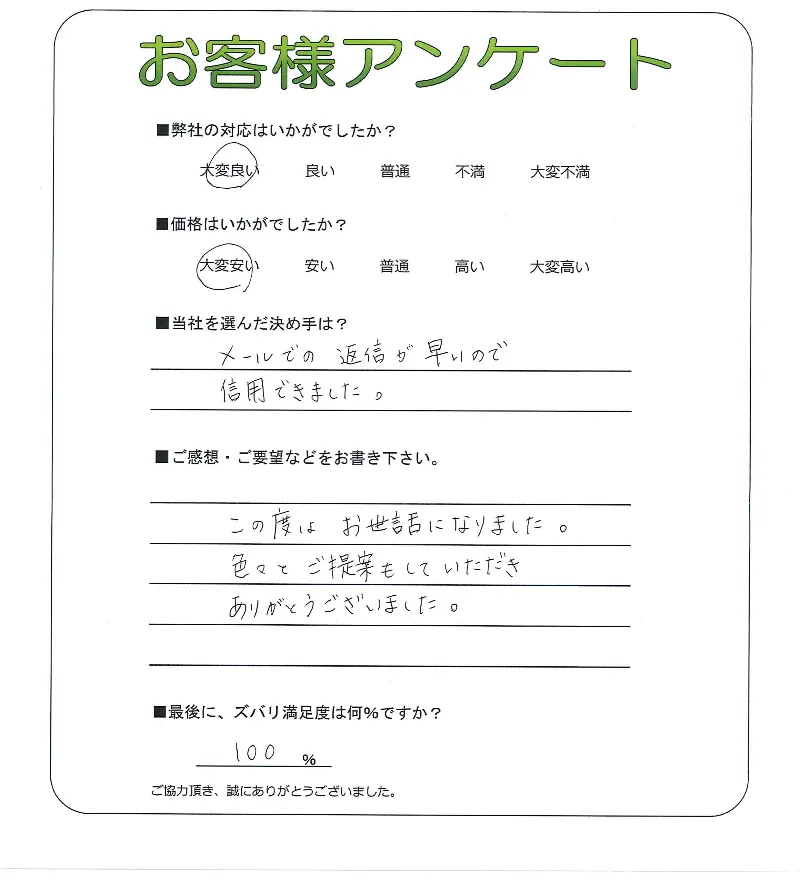 お客様アンケート
■弊社の対応はいかがでしたか？
大変良い 良い 普通 不満 大変不満
■価格はいかがでしたか？
大変安い 安い 普通 高い 大変高い
■当社を選んだ決め手は？
メールでの 返信が 早いので
信用できました。
■ご感想・ご要望などをお書き下さい。
この度は お世話になりました。
色々と ご提案もして いただき
ありがとうございました。
■最後に、ズバリ満足度は何％ですか？
100 ％
ご協力頂き、誠にありがとうございました。